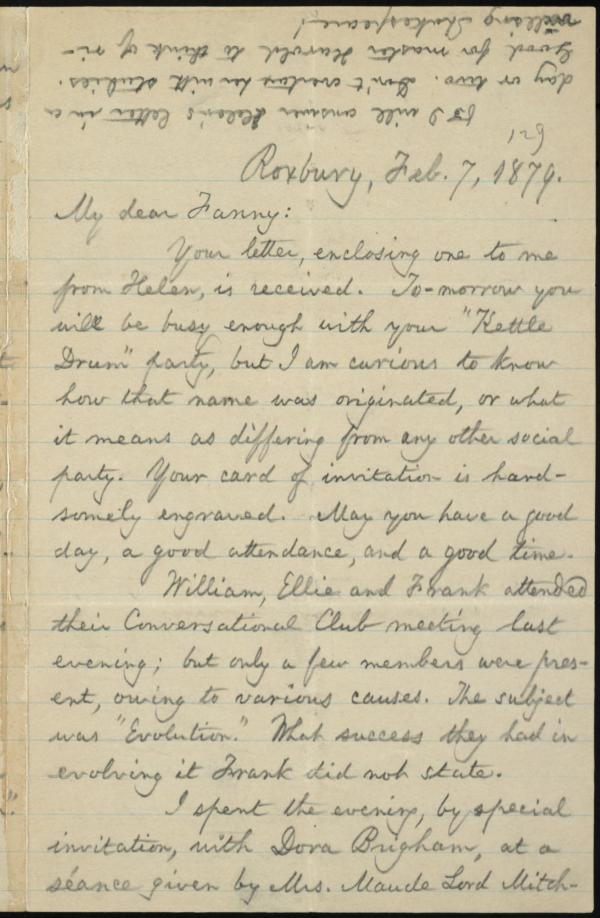 PS I will answer Helen's letter in a
day or two. Don't overtax her with studies.
Good for master Harold to think of ri-
valling Shakespeare!
129
Roxbury, Feb. 7, 1879.
My dear Fanny:
Your letter, enclosing one to me
from Helen, is received. To-morrow you
will be busy enough with your "Kettle
Drum" party, but I am curious to know
how that name was originated, or what
it means as differing from any other social
party. Your card of invitation is hand-
somely engraved. May you have a good
day, a good attendance, and a good time.
William, Ellie and Frank attended
their Conversational Club meeting last
evening; but only a few members were pres-
ent, owing to various causes. The subject
was "Evolution." What success they had in
evolving it Frank did not state.
I spent the evening, by special
invitation, with Dora Brigham, at a
séance given by Mrs. Maude Lord Mitch-